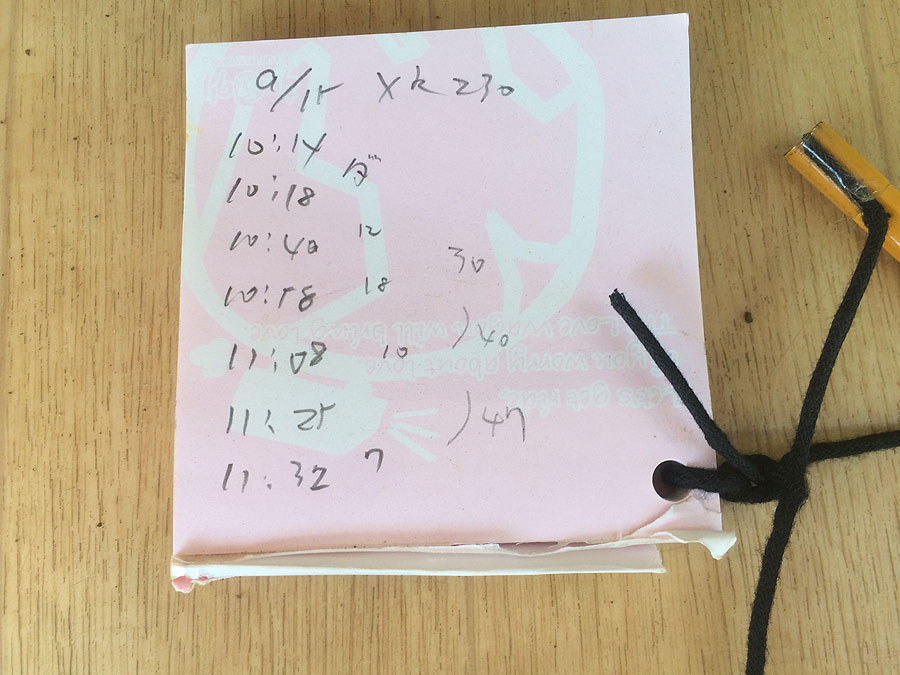 9/15 XK230
10:14
10:18
10:40 12
30
10:58 18
11:08 10 )40
11:25 )47
11:32 7
you worry about love.